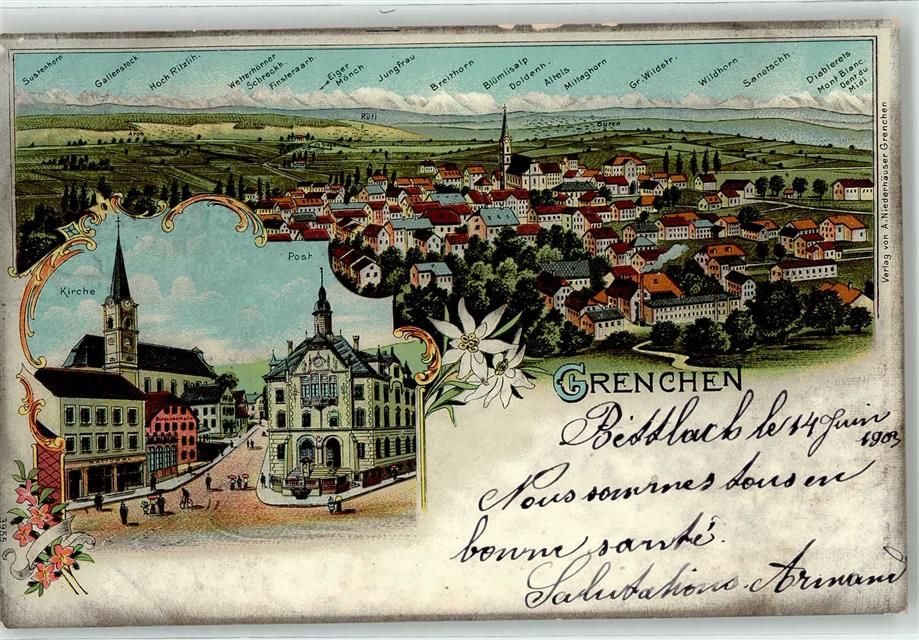 Sustenhorn
Gallenstock
Hoch Ritzlih.
Wetterhörner
Schreckh.
Finsteraarh.
Eiger
Mönch
Jungfrau
Breithorn
Blümlisalp
Doldenh.
Altels
Mittaghorn
Gr. Wildstr.
Wildhorn
Sanetschh.
Diablerets
Mont Blanc.
Dent du
Midi
Rüti
Büren
Verlag von A. Niederhäuser Grenchen
Kirche
Post
GRENCHEN
Bettlach le 14 Juin
1903
Nous sommes tous en
bonne santé.
Salutations. Armand
3955